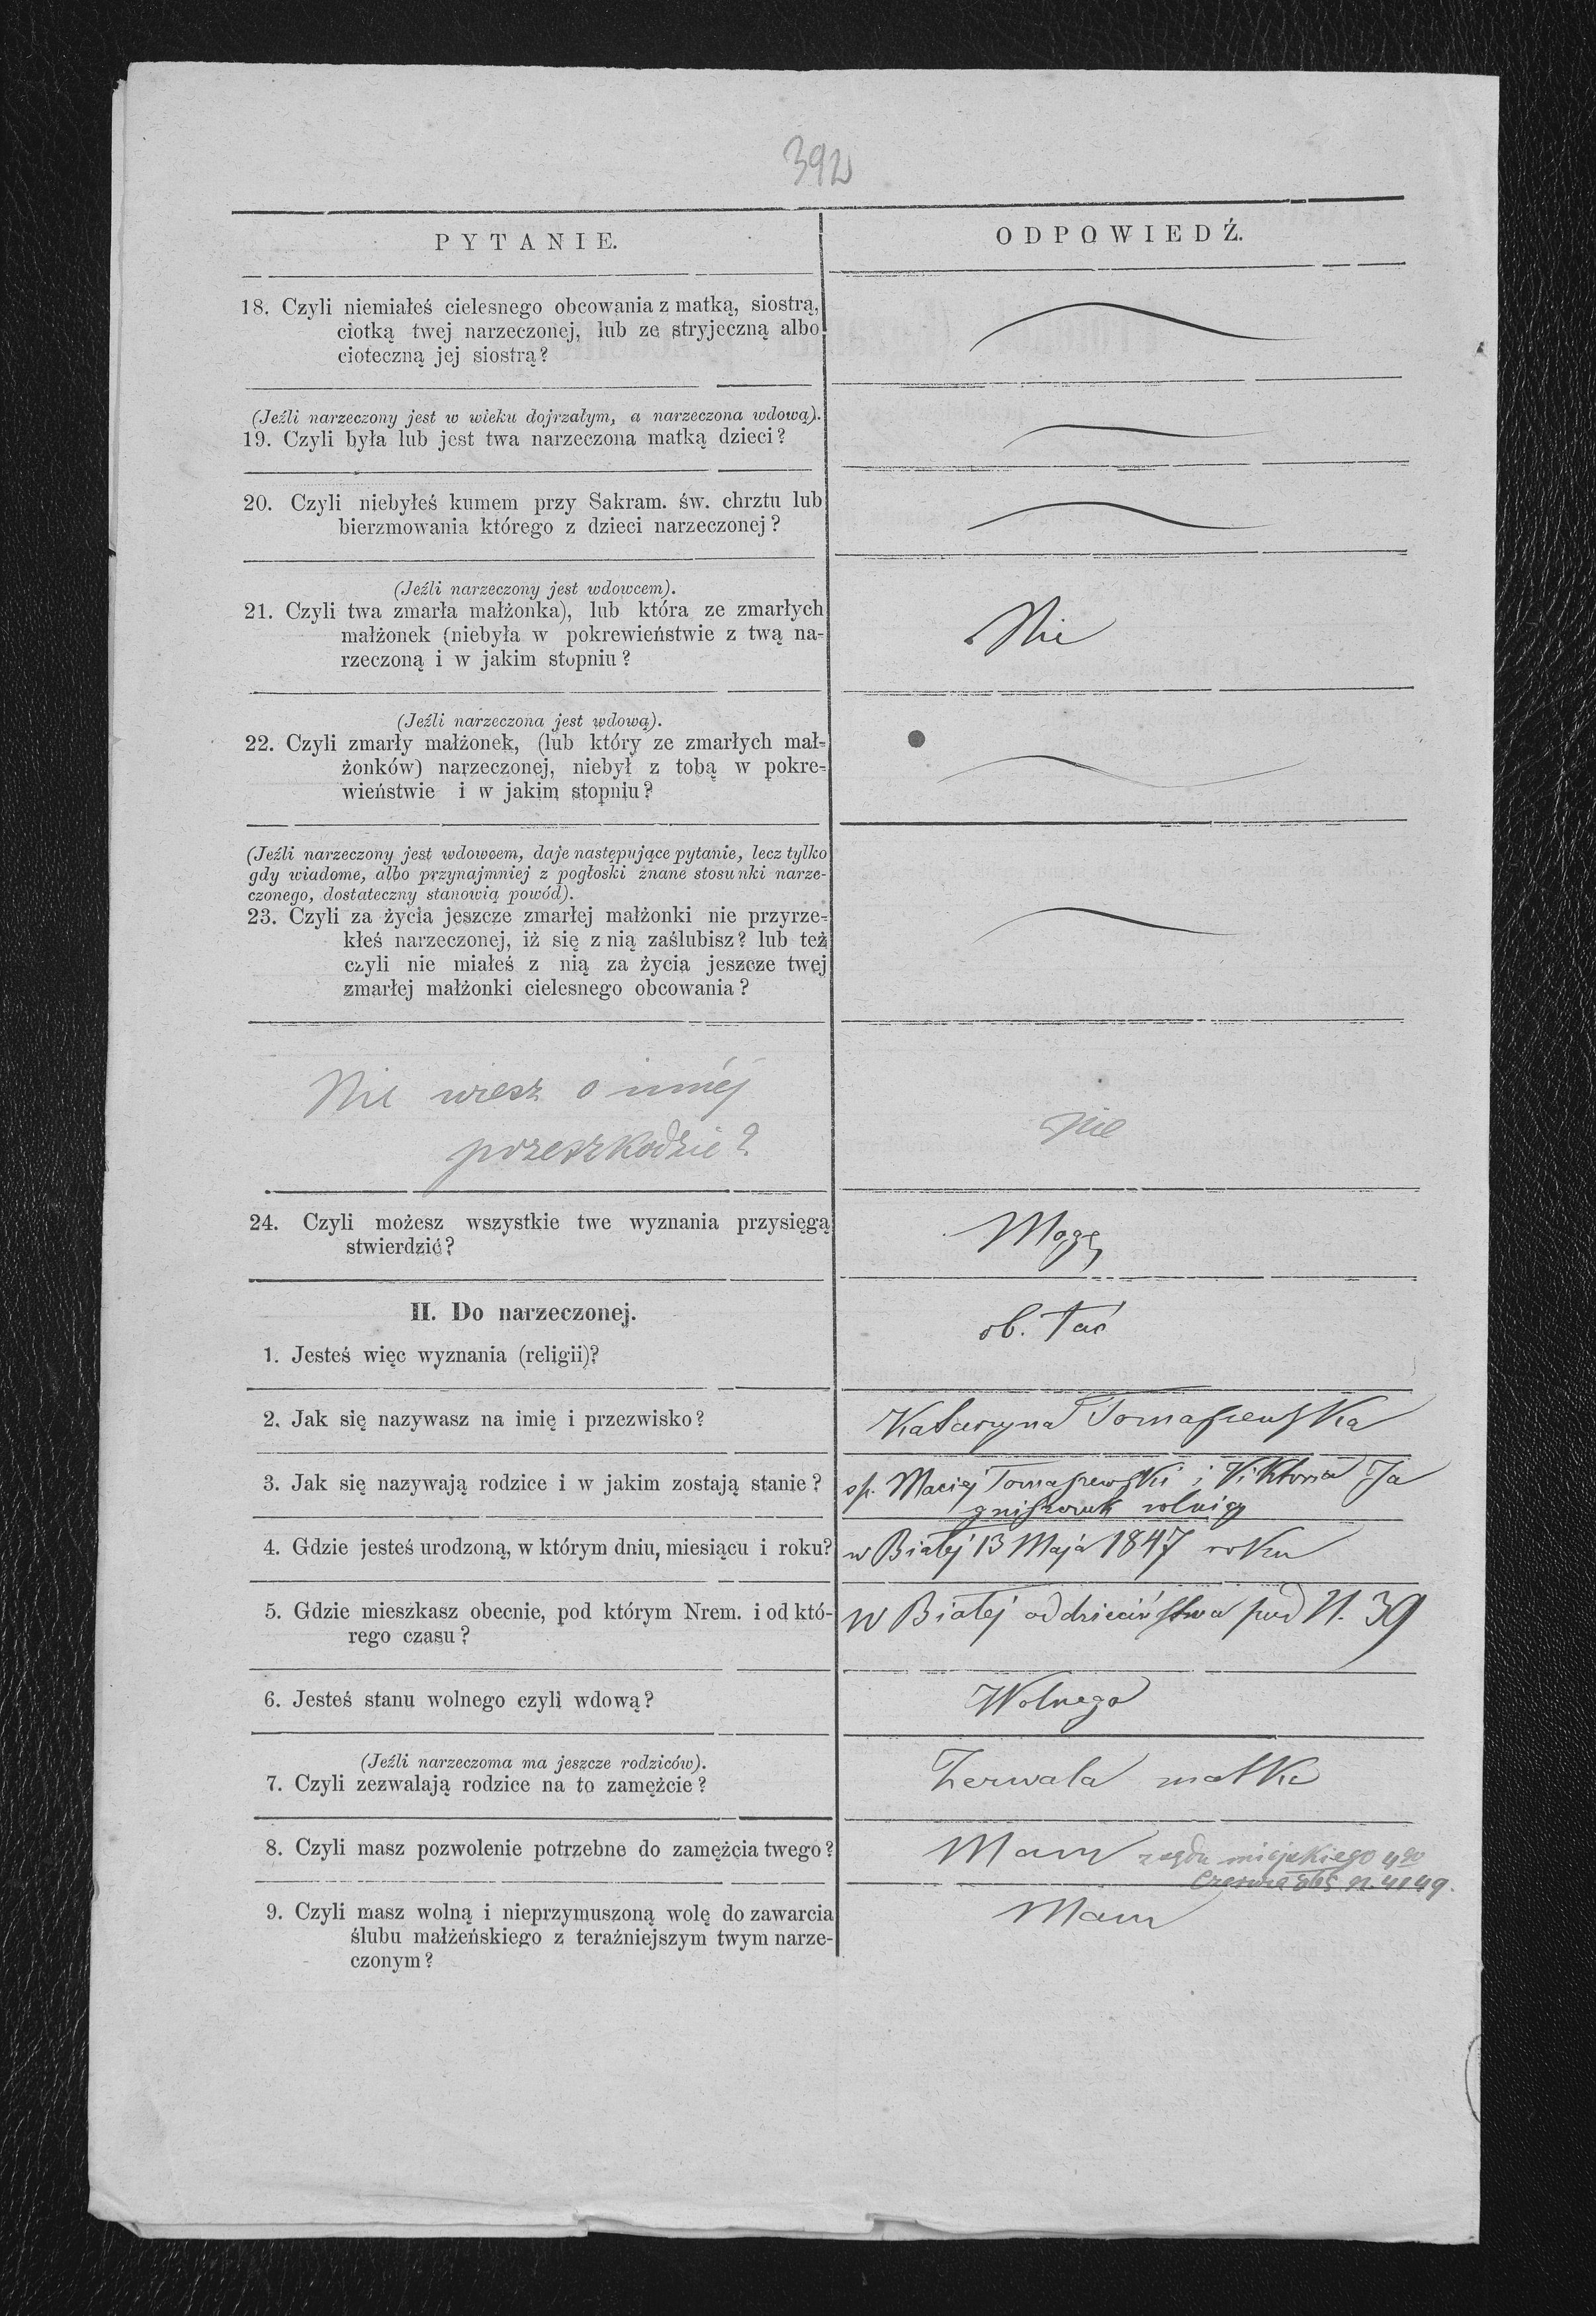 392
PYTANIE.
ODPOWIEDŹ.
18. Czyli niemiałeś cielesnego obcowania z matką, siostrą,
ciotką twej narzeczonej, lub ze stryjeczną albo
cioteczną jej siostrą?
(Jeźli narzeczony jest w wieku dojrzałym, a narzeczona wdową).
19. Czyli była lub jest twa narzeczona matką dzieci?
20. Czyli niebyłeś kumem przy Sakram. św. chrztu lub
bierzmowania którego z dzieci narzeczonej?
(Jeźli narzeczony jest wdowcem).
21. Czyli twa zmarła małżonka), lub która ze zmarłych
małżonek (niebyła w pokrewieństwie z twą na-
rzeczoną i w jakim stopniu?
Nie
(Jeźli narzeczona jest wdową).
22. Czyli zmarły małżonek, (lub który ze zmarłych mał-
żonków) narzeczonej, niebył z tobą w pokre-
wieństwie i w jakim stopniu?
(Jeźli narzeczony jest wdowcem, daje następujące pytanie, lecz tylko
gdy wiadome, albo przynajmniej z pogłoski znane stosunki narze-
czonego, dostateczny stanowią powód).
23. Czyli za życia jeszcze zmarłej małżonki nie przyrze-
kłeś narzeczonej, iż się z nią zaślubisz? lub też
czyli nie miałeś z nią za życia jeszcze twej
zmarłej małżonki cielesnego obcowania?
Nie wiesz o innéj
przeszkodzie?
nie
24. Czyli możesz wszystkie twe wyznania przysięgą
stwierdzić?
Mogę
II. Do narzeczonej.
1. Jesteś więc wyznania (religii)?
ob. łać
2. Jak się nazywasz na imię i przezwisko?
Katarzyna Tomaszewska
3. Jak się nazywają rodzice i w jakim zostają stanie?
sp. Maciej Tomaszewski i Viktoria Ja
gniszczuk rolnicy
4. Gdzie jesteś urodzoną, w którym dniu, miesiącu i roku?
w Białej 13 Maja 1847 roku
5. Gdzie mieszkasz obecnie, pod którym Nrem. i od któ-
rego czasu?
W Białej od dzieciństwa pod N. 39
6. Jesteś stanu wolnego czyli wdową?
Wolnego
(Jeźli narzeczoma ma jeszcze rodziców).
7. Czyli zezwalają rodzice na to zamężcie?
Zezwala matka
8. Czyli masz pozwolenie potrzebne do zamężcia twego?
Mam miejskiego 4go
Czerwca 865 n. 4149.
9. Czyli masz wolną i nieprzymuszoną wolę do zawarcia
ślubu małżeńskiego z teraźniejszym twym narze-
czonym?
Mam